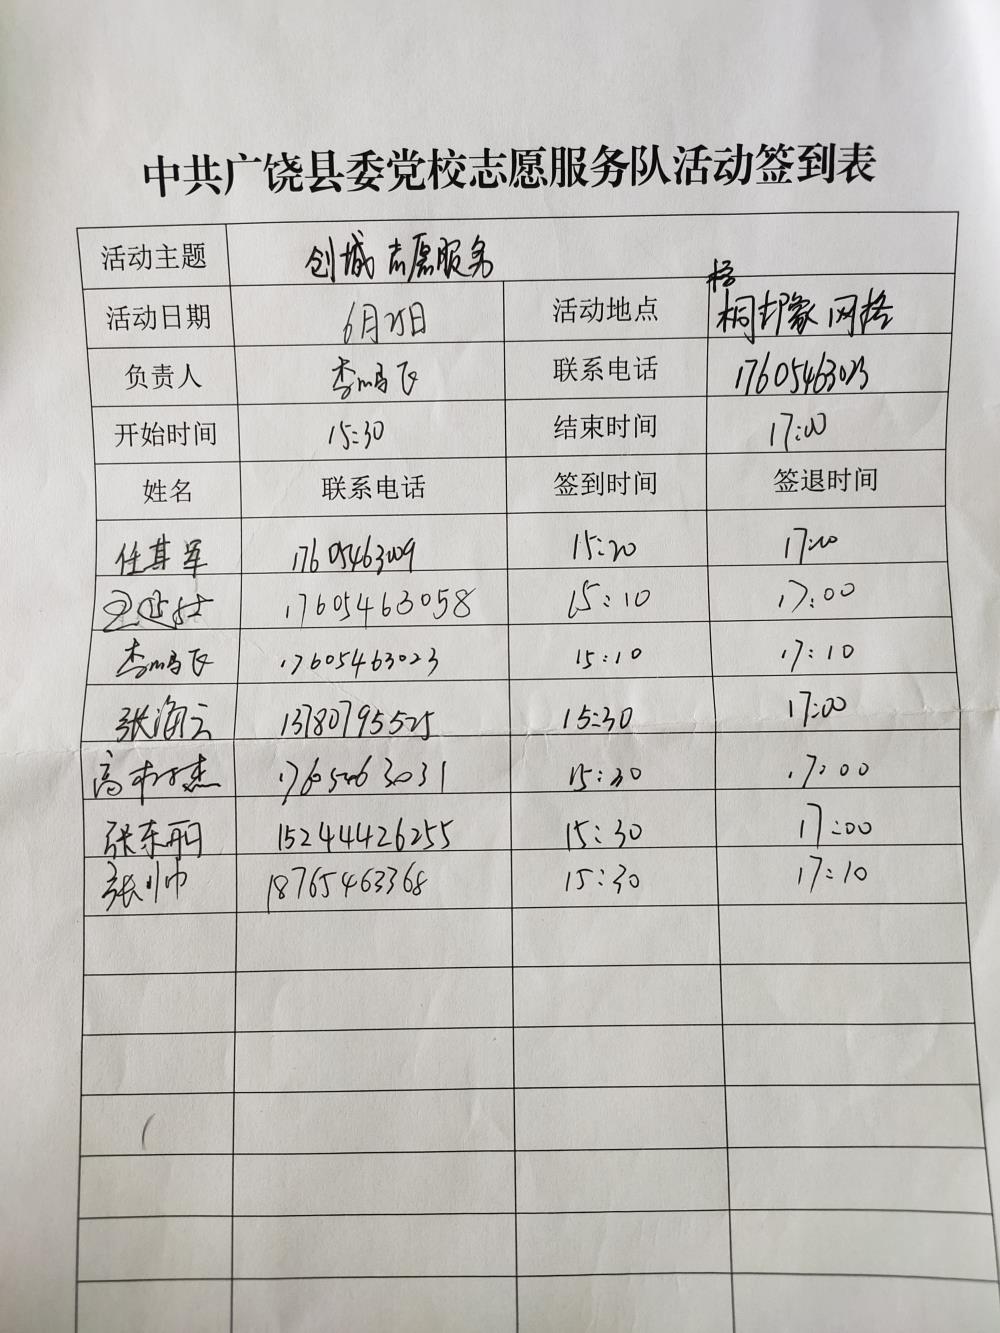 中共广饶县委党校志愿服务队活动签到表
活动主题 创城志愿服务
活动日期 6月25日 活动地点 梧桐印象网格
负责人 李鹏飞 联系电话 17605463023
开始时间 15:30 结束时间 17:00
姓名 联系电话 签到时间 签退时间
任其军 17605463009 15:20 17:00
17605463058 15:10 17:00
李鹏飞 17605463023 15:10 17:10
张海云 13780795525 15:30 17:00
高树杰 17605463031 15:30 17:00
张东丽 15244426255 15:30 17:00
张帅 18765463368 15:30 17:10